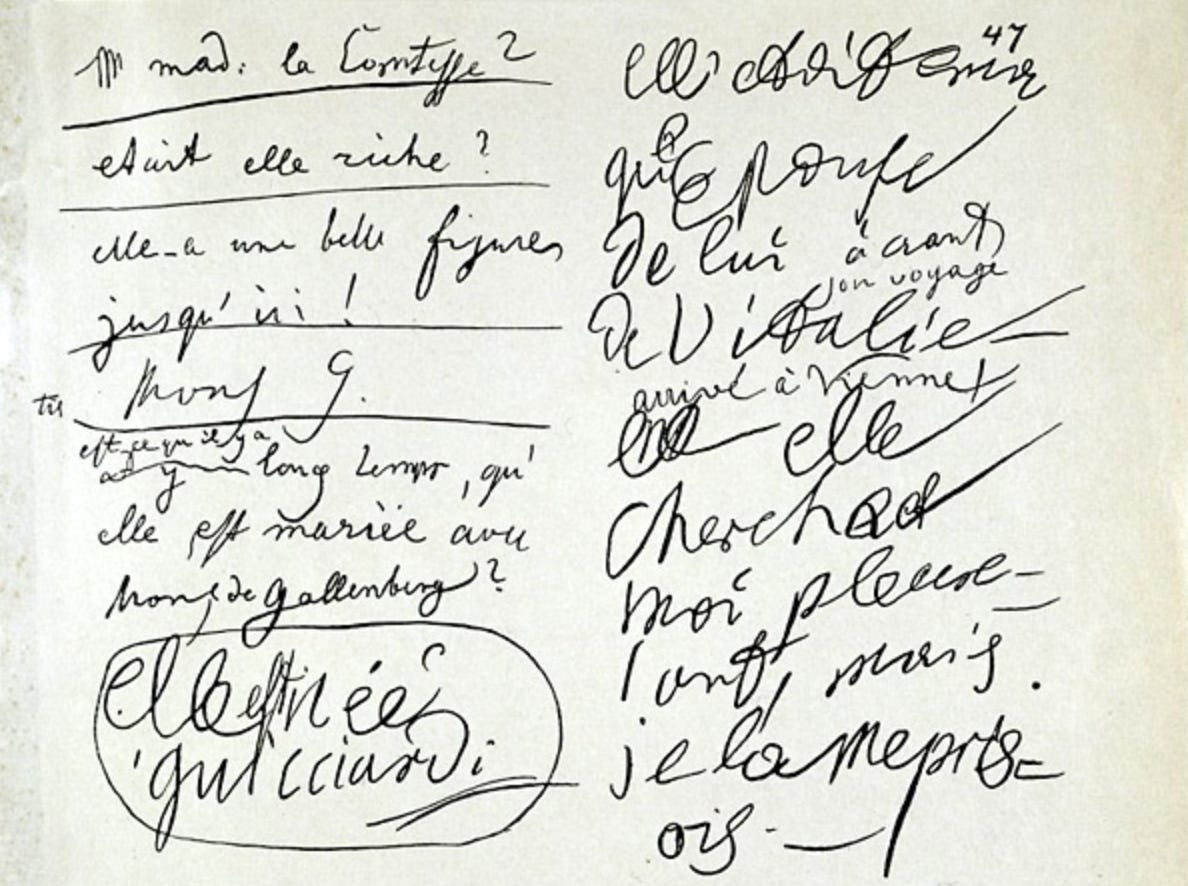 mad: la Comtesse?
etait elle riche?
elle a une belle figures
jusqu'ici!
Mons G.
est ce qu'il y a
long temps, qu'
elle est mariée avec
Mons de Gallenberg?
elle est née
Guicciardi
47
elle etoit
qui Epouse
de lui avant
son voyage
de l'italie
arrivé à Vienne
elle
cherchoit
moi pleure-
ant, mais.
je la mepris-
ois.